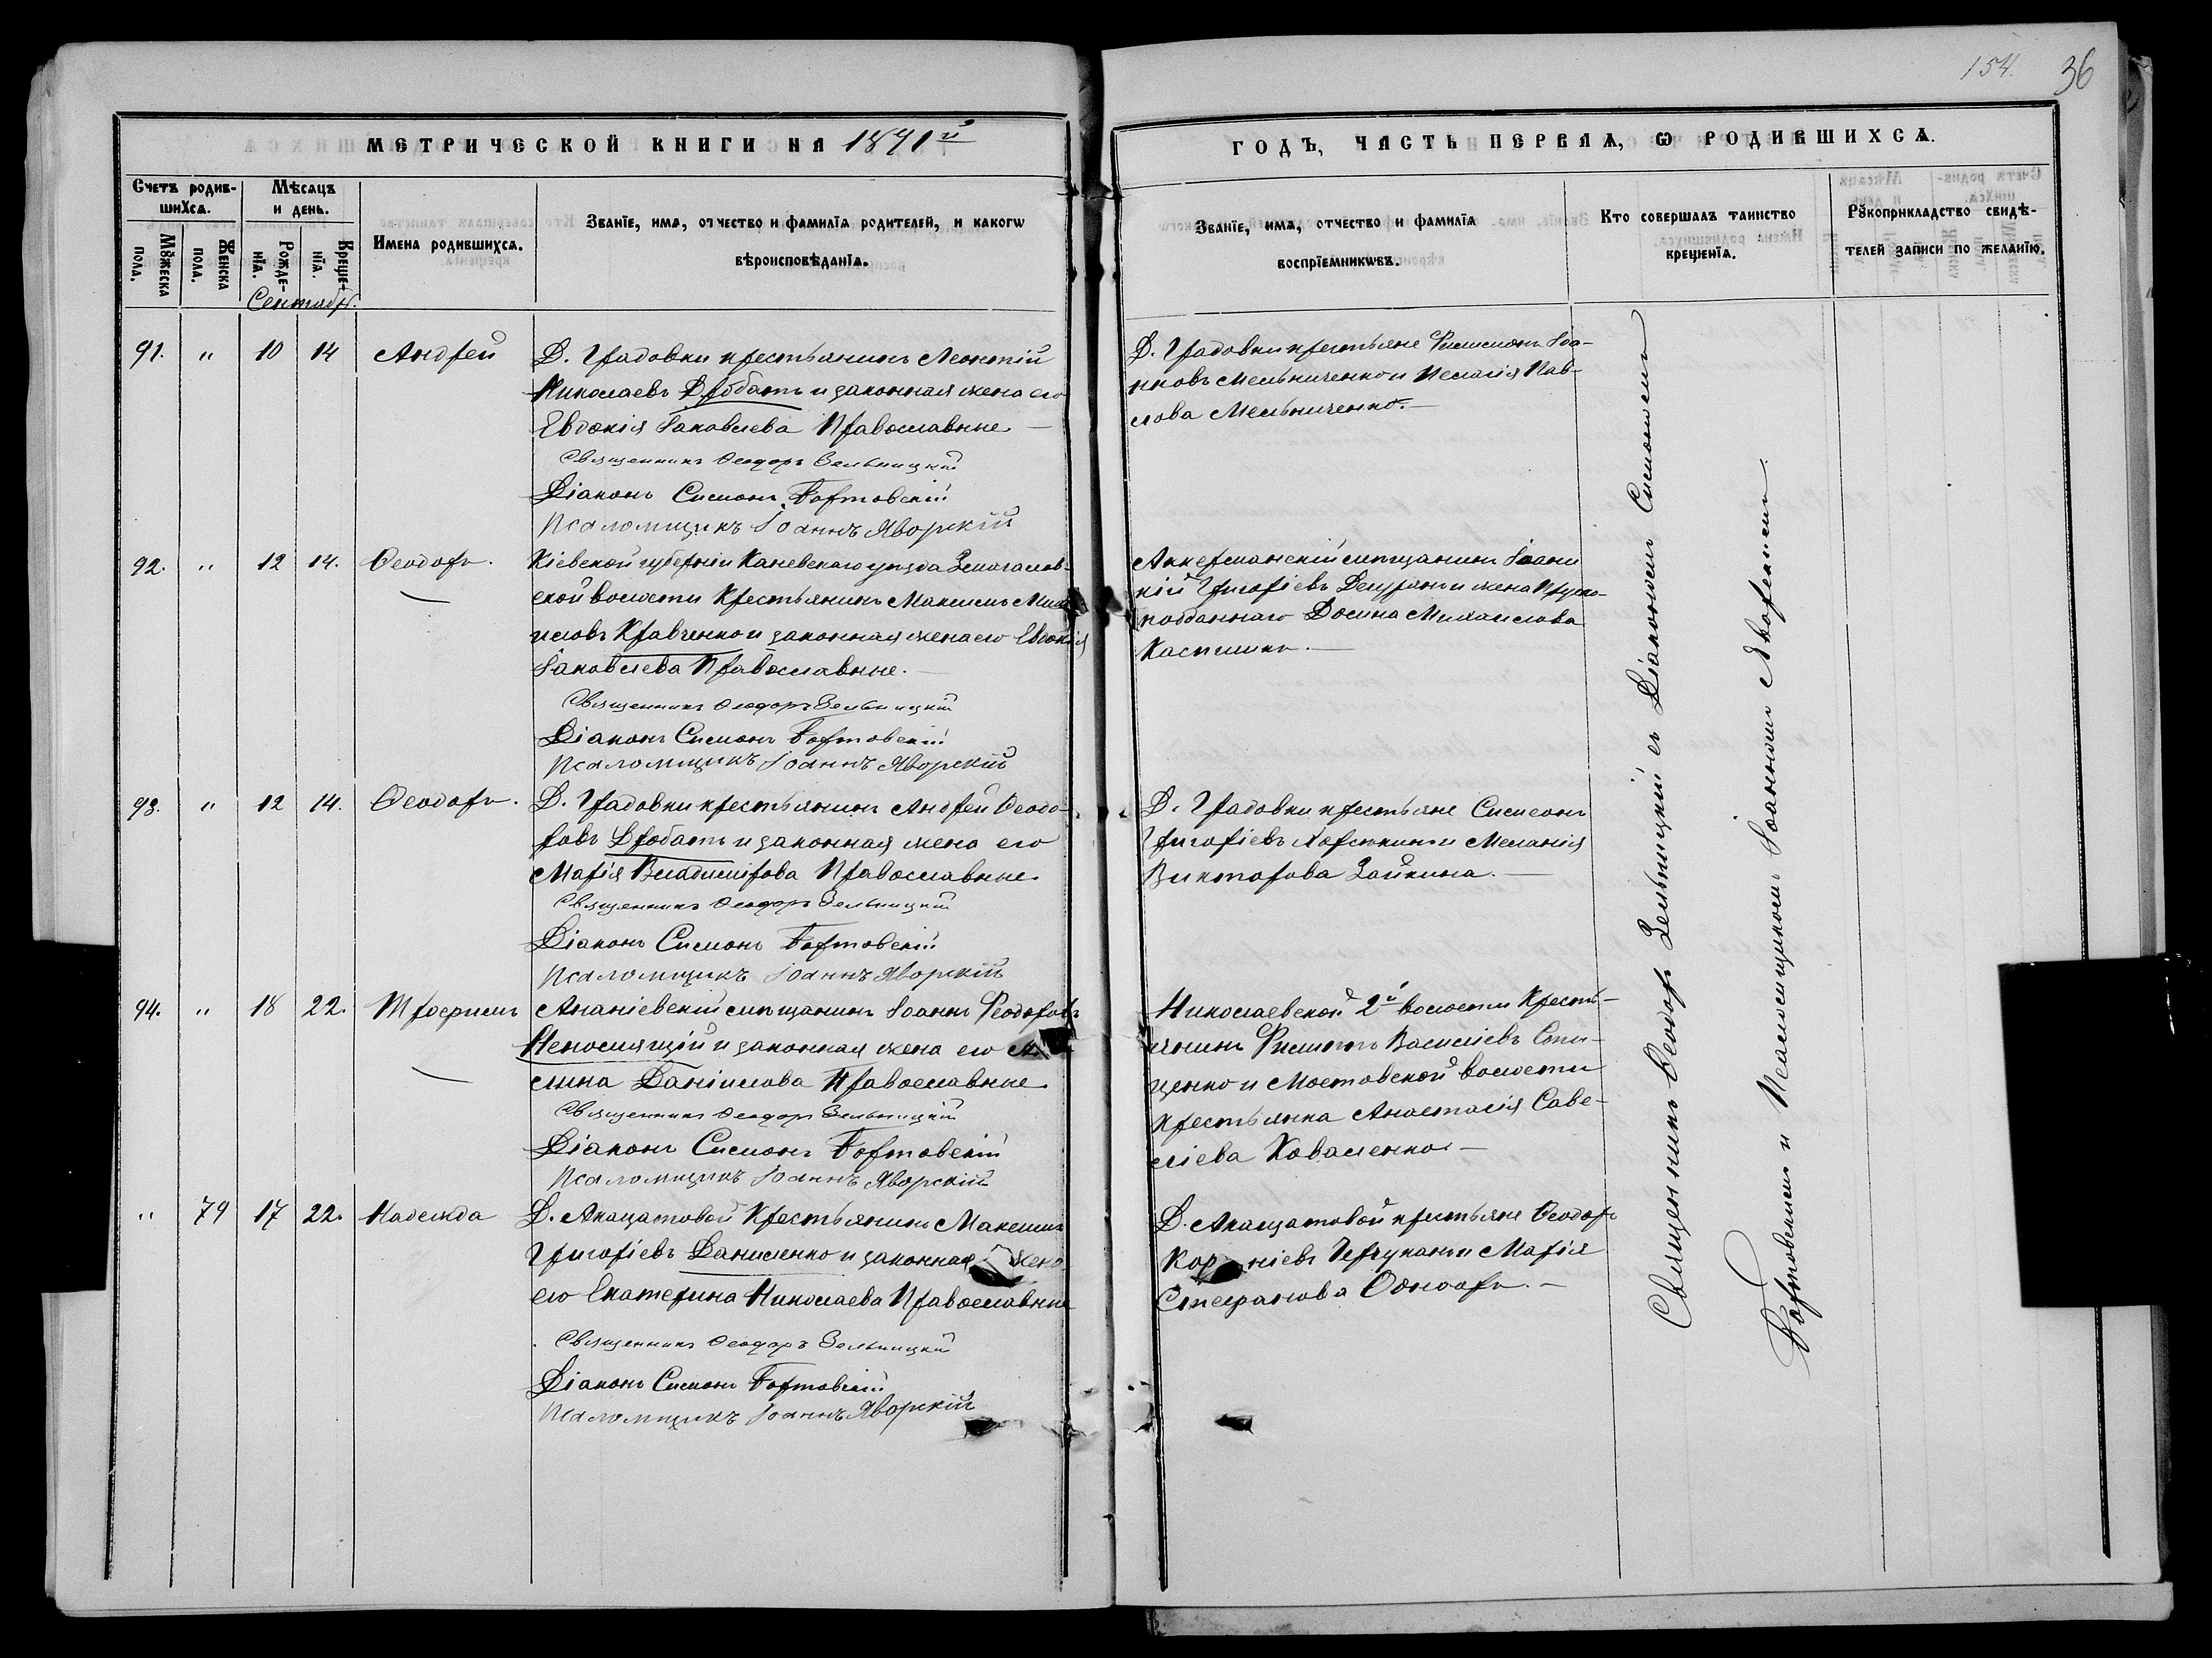 154. 36
МЕТРИЧЕСКОЙ КНИГИ НА 1871й
ГОДЪ, ЧАСТЬ ПЕРВАЯ, Ѡ РОДИВШИХСѦ.
Счетъ родив-
шихсѧ.
Мѣсѧцъ
и день.
Мꙋжеска
пола.
Женска
пола.
Рожде-
нїа.
Креще-
нїа.
Имена родившихсѧ.
Званїе, имѧ, отчество и фамилїа родителей, и какогѡ
вѣроисповѣданїа.
Званїе, имѧ, отчество и фамилїа
воспрїемникѡвъ.
Кто совершалъ таинство
крещенїа.
Рꙋкоприкладство свидѣ-
телей записи по желанїю.
Сентябр.
91. " 10 14 Андрей
Д. Градовки крестьянинъ Леонтій
Николаевъ Дробатъ и законная жена его
Евдокія Іаковлева Православные
Священникъ Ѳеодоръ Зельницкій
Діаконъ Симонъ Бортовскій
Псаломщикъ Іоаннъ Яворскій
Д. Градовки крестьяне Филимонъ Іоа-
нновъ Мельниченко и Пелагія Пав-
лова Мельниченко.
92. " 12 14. Ѳеодоръ.
Кіевской губерніи Каневскаго уѣзда
ской волости Крестьянинъ Максимъ
иловъ Кравченко и законная жена его Евдокія
Іаковлева Православные.
Священникъ Ѳеодоръ Зельницкій
Діаконъ Симонъ Бортовскій
Псаломщикъ Іоаннъ Яворскій
Аккерманскій мѣщанинъ Іоанн
кій Григоріевъ и жена
подданнаго Домна Михаилова
93. " 12 14. Ѳеодоръ.
Д. Градовки крестьянинъ Андрей Ѳеодо-
ровъ Дробатъ и законная жена его
Марія Владимірова Православные.
Священникъ Ѳеодоръ Зельницкій
Діаконъ Симонъ Бортовскій
Псаломщикъ Іоаннъ Яворскій
Д. Градовки крестьяне Симеонъ
Григоріевъ и Меланія
Викторова Зайкина.
94. " 18 22. Трофимъ
Ананіевскій мѣщанинъ Іоаннъ Ѳеодоровъ
и законная жена его
Даніилова Православные.
Священникъ Ѳеодоръ Зельницкій
Діаконъ Симонъ Бортовскій
Псаломщикъ Іоаннъ Яворскій
Николаевской 2й волости Кресть-
янинъ Филиппъ Василіевъ
щенко и Мостовской волости
крестьянка Анастасія Саве-
ліева Коваленко
" 79 17 22. Надежда
Д. Акацатовой Крестьянинъ Максимъ
Григоріевъ Даниленко и законная жена
его Екатерина Николаева Православные
Священникъ Ѳеодоръ Зельницкій
Діаконъ Симонъ Бортовскій
Псаломщикъ Іоаннъ Яворскій
Д. Акацатовой крестьяне Ѳеодоръ
и Марія
Стефанова
Священникъ Ѳеодоръ Зельницкій съ Діакономъ Симономъ
Бортовскимъ и Псаломщикомъ Іоанномъ Яворскимъ